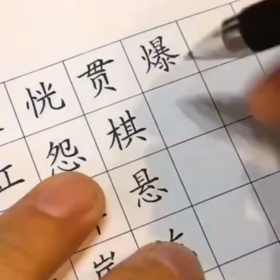 恍贯爆
怨棋
悬